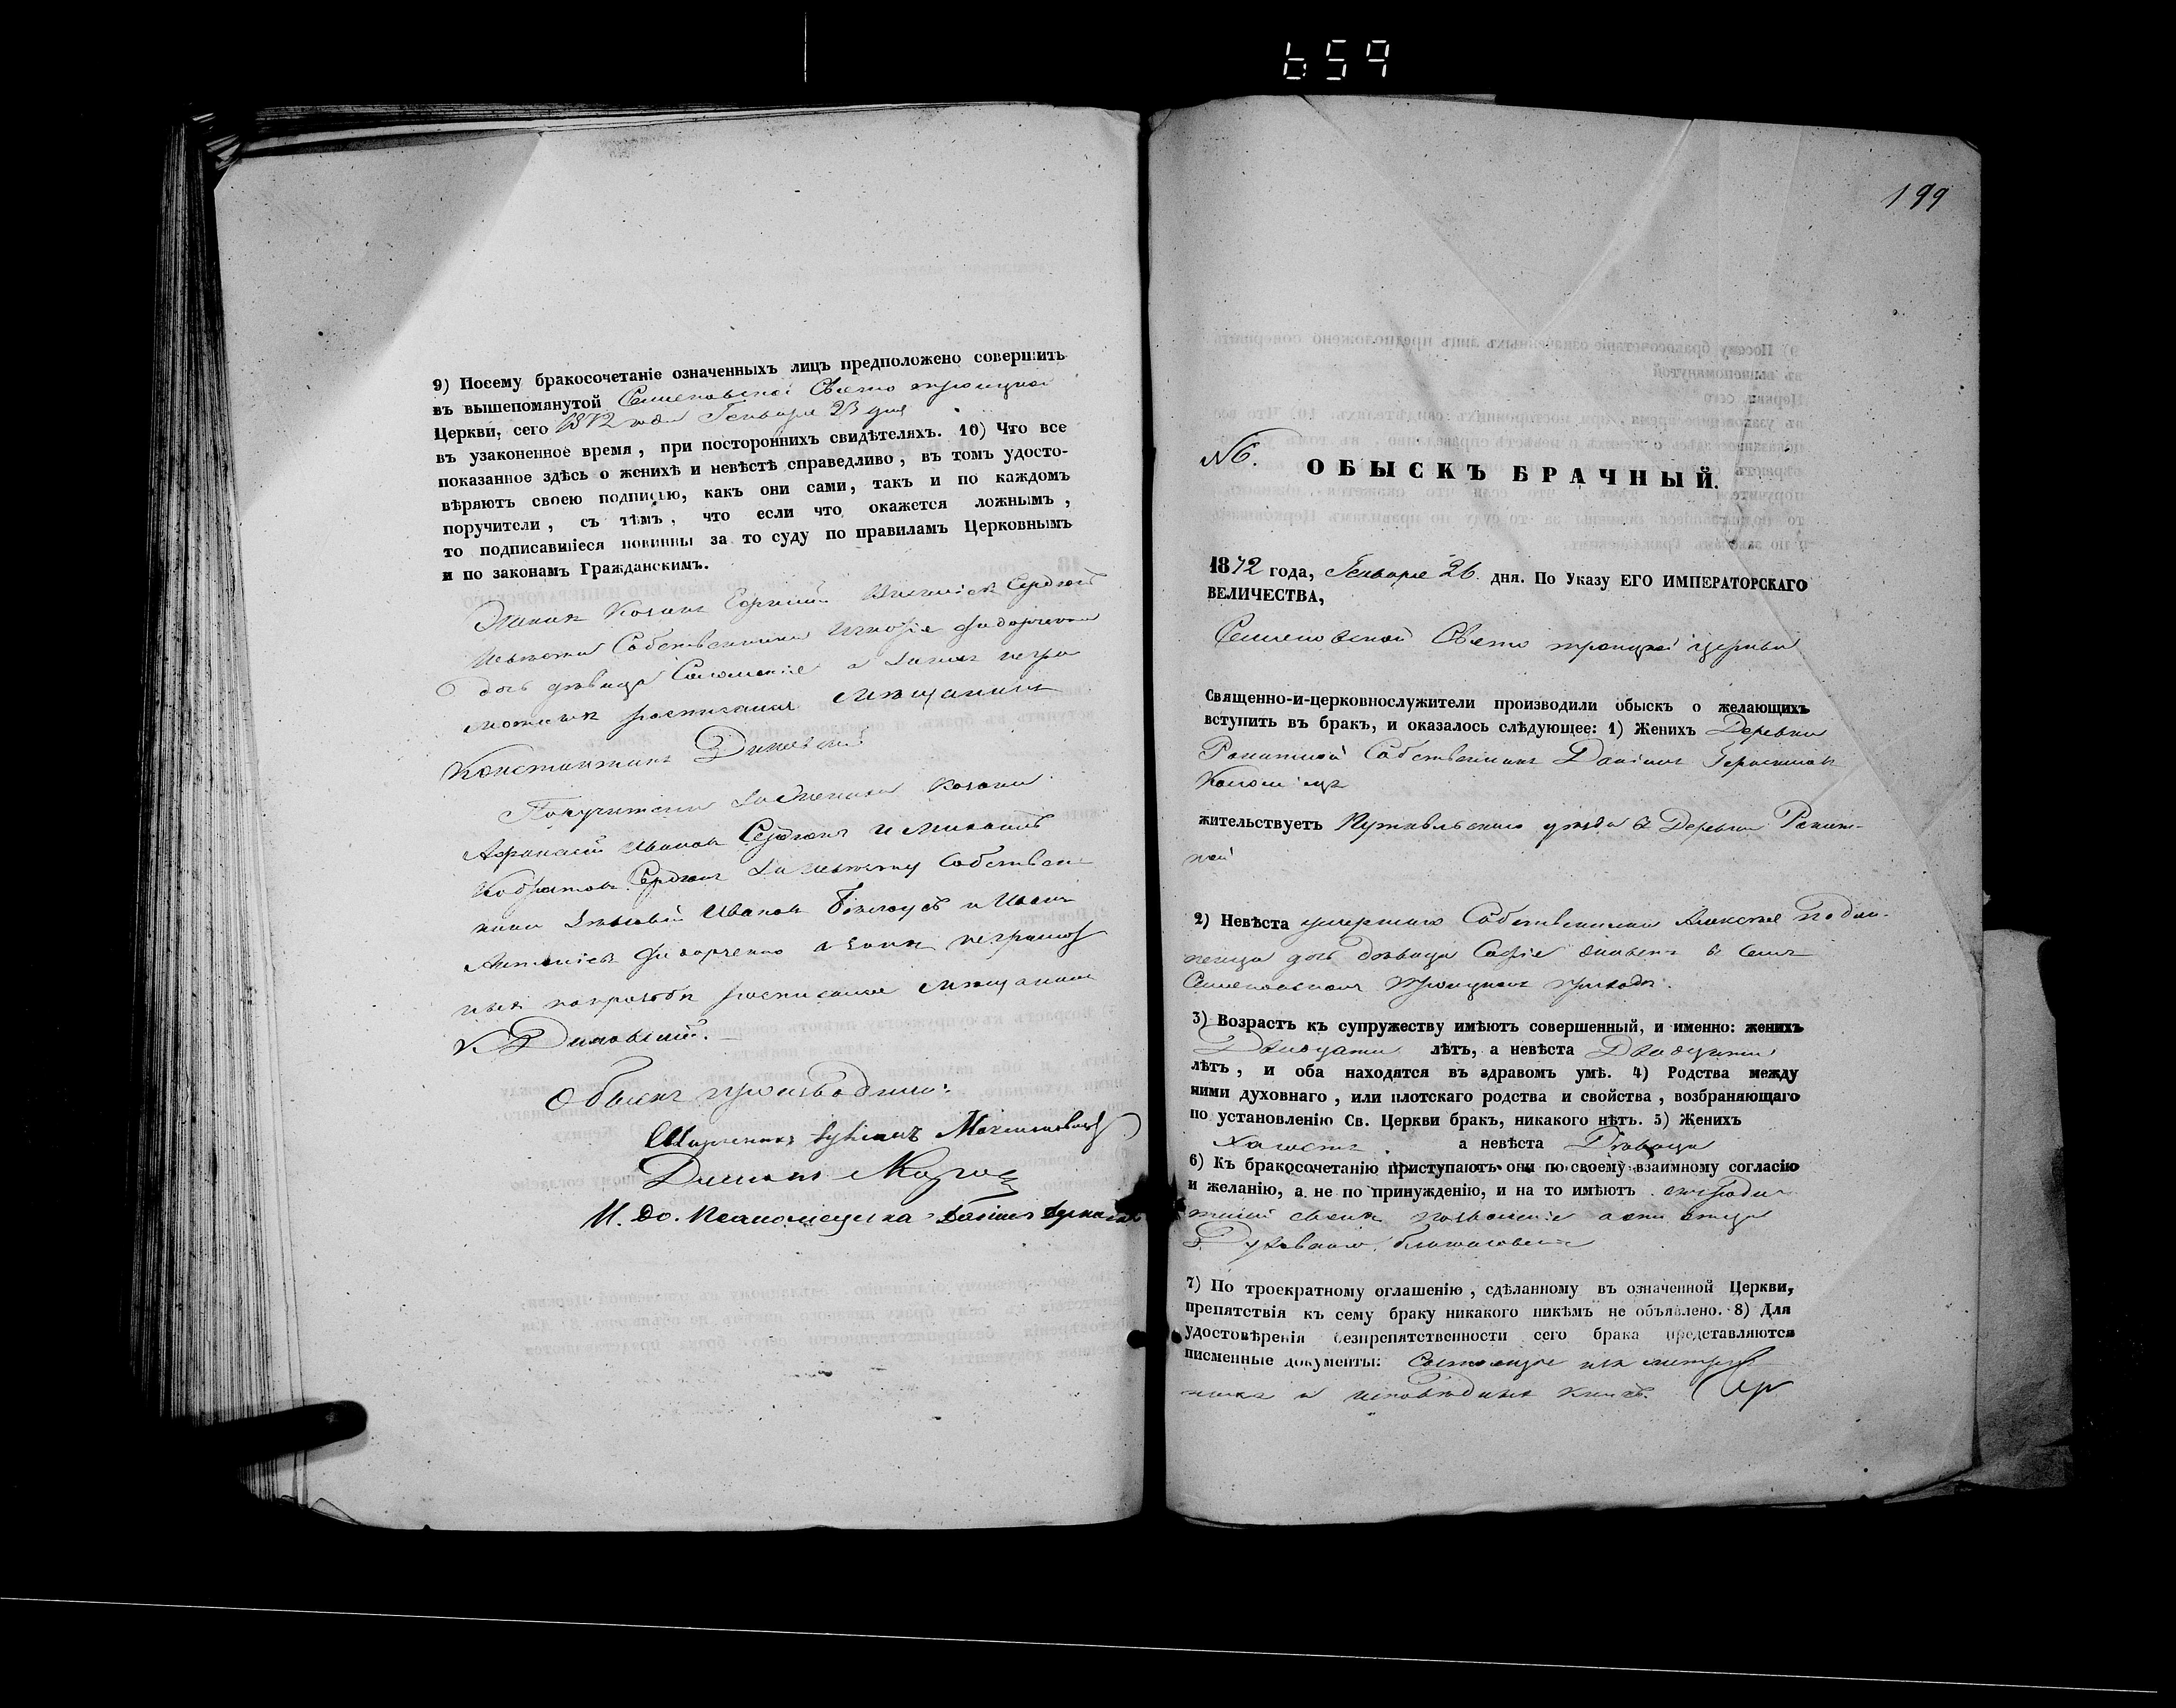 659
9) Посему бракосочетаніе означенныхъ лицъ предположено совершить
въ вышепомянутой Семеновской Свято троицкой
Церкви, сего 1872 года Генваря 23 дня
въ узаконенное время, при постороннихъ свидѣтеляхъ. 10) Что все
показанное здѣсь о женихѣ и невѣстѣ справедливо, въ томъ удосто-
вѣряютъ своею подписью, какъ они сами, такъ и по каждомъ
поручители, съ тѣмъ, что если что окажется ложнымъ,
то подписавшіеся повинны за то суду по правиламъ Церковнымъ
и по законамъ Гражданскимъ.
Женихъ Козакъ Сердюкъ
Невѣста Собственника Федорченка
дочь дѣвица а за нихъ негра
мотныхъ росписался Мѣщанинъ
Константинъ
Поручители за жениха козаки
Афанасій Ивановъ Сердюкъ и Михаилъ
Кодратовъ Сердюкъ за невѣсту Собствен
ники Ивановъ Бѣлоусъ и Иванъ
Федорченко а за нихъ неграмот
ныхъ росписался Мѣщанинъ
К.
Обыскъ производили:
Священникъ Максимовичъ
И. до. Псаломщика
199
№6.
ОБЫСКЪ БРАЧНЫЙ.
1872 года, Генваря 26 дня. По Указу ЕГО ИМПЕРАТОРСКАГО
ВЕЛИЧЕСТВА,
Семеновской Свято троицкой церкви
Священно-и-церковнослужители производили обыскъ о желающихъ
вступить въ бракъ, и оказалось слѣдующее: 1) Женихъ Деревни
Ракитной Собственникъ Даніилъ Герасимовъ
Коломіецъ
жительствуетъ Путивльскаго уѣзда въ Деревни Ракит-
ной
2) Невѣста умершаго Собственника Алексѣя
дочь дѣвица Софія въ селѣ
Семеновскомъ троицкомъ приходѣ.
3) Возрастъ къ супружеству имѣютъ совершенный, и именно: женихъ
Двадцати лѣтъ, а невѣста Двадцати
лѣтъ, и оба находятся въ здравомъ умѣ. 4) Родства между
ними духовнаго, или плотскаго родства и свойства, возбраняющаго
по установленію Св. Церкви бракъ, никакого нѣтъ. 5) Женихъ
Холостъ а невѣста Дѣвица
6) Къ бракосочетанію приступаютъ они по своему взаимному согласію
и желанію, а не по принужденію, и на то имѣютъ отъ роди
телей своихъ позволеніе а отъ отца
Духовнаго благословеніе
7) По троекратному оглашенію, сдѣланному въ означенной Церкви,
препятствія къ сему браку никакого никѣмъ не объявлено. 8) Для
удостовѣренія безпрепятственности сего брака представляются
писменные документы: Состоящіе изъ метриче
скихъ и исповѣдныхъ книгъ.